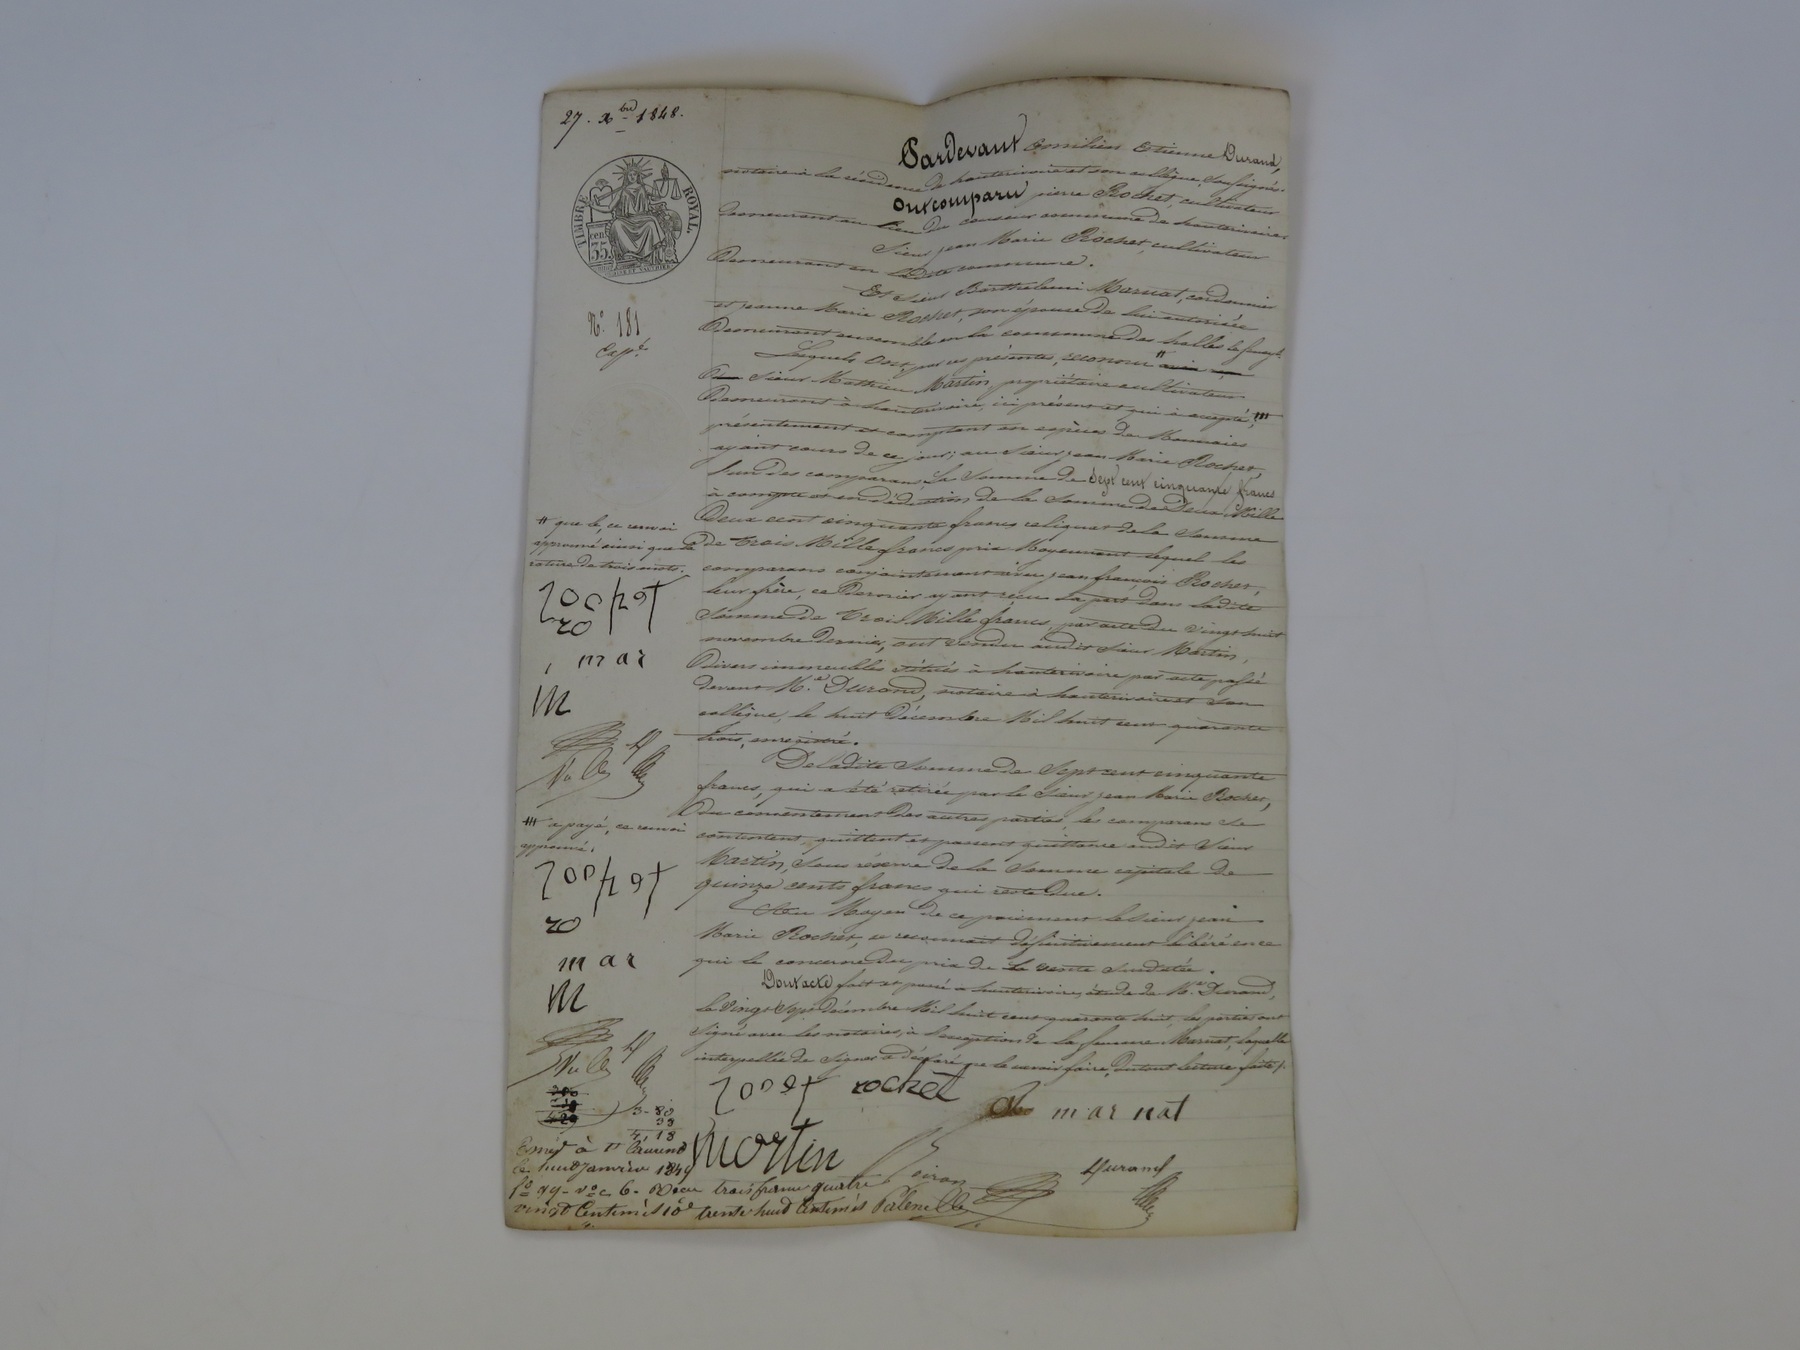 27. Xbre 1848.
TIMBRE ROYAL.
cen. 35.
No. 181
Expé.
Pardevant Etienne Durand,
notaire à la résidence de hauterivoire et son collègue, soussignés.
Ont comparu pierre Rochet, cultivateur
demeurant au lieu du commune de hauterivoire
Sieur jean Marie Rochet, cultivateur
Demeurant en ladite commune.
Et sieur Barthelemi Marnat, cordonnier
et jeanne Marie Rochet, son épouse de lui autorisée
Demeurant ensemble en la commune des halles le
Lesquels ont, par ces présentes, reconnu #
Sieur Mathieu Martin, propriétaire cultivateur
Demeurant à hauterivoire, ici présent et qui a accepté, ##
présentement et comptant en espèces de Monnaies
ayant cours de ce jour, au sieur jean Marie Rochet,
l'un des comparans, la Somme de Sept cent cinquante francs
à compte et en déduction de la Somme de Deux Mille
Deux cent cinquante francs reliquat de la Somme
de Trois Mille francs prix Moyennant lequel les
comparans conjointement avec jean françois Rochet,
leur frère, ce Dernier ayant reçu sa part dans ladite
Somme de Trois Mille francs, par acte du vingt huit
novembre Dernier, ont vendu audit sieur Martin,
Divers immeubles situés à hauterivoire par acte passé
devant Me. Durand, notaire à hauterivoire et son
collègue, le huit Décembre Mil huit cent quarante
trois, enregistré.
De ladite Somme de Sept cent cinquante
francs, qui a été retirée par le sieur jean Marie Rochet,
Du consentement des autres parties, les comparans se
contentent, quittent et passent quittance audit Sieur
Martin, sous réserve de la Somme capitale de
quinze cents francs qui reste due.
Au Moyen de ce paiement le sieur jean
Marie Rochet, se reconnait définitivement libéré en ce
qui le concerne du prix de la vente susdatée.
Dont acte fait et passé à hauterivoire, étude de Me. Durand,
le vingt Sept décembre Mil huit cent quarante huit, les parties ont
signé avec les notaires, à l'exception de la femme Marnat, laquelle
interpellée de signer a déclaré ne le savoir faire, dutout lecture faite /.
# que le, ce renvoi
approuvé ainsi que la
rature de trois mots.
mar
M
## a payé, ce renvoi
approuvé.
mar
M
3-80
38
4,18
rochet
marnat
Martin
Durand
le huit janvier 1849
fo vo c. 6. Reçu trois francs quatre
vingt Centimes 10e trente huit Centimes